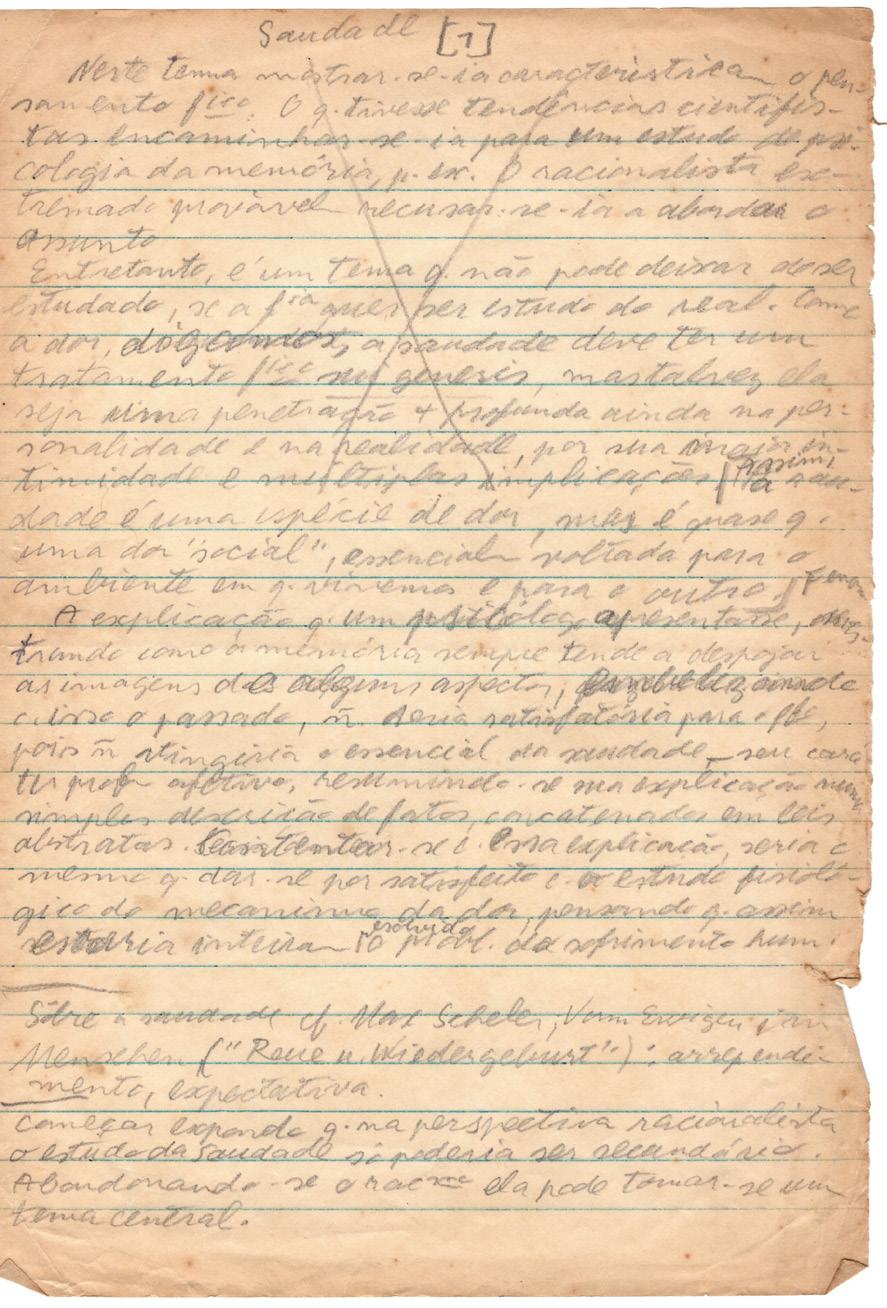 Saudade [1]
Neste tema mostrar-se-ia caracteristicam o pen-
samento fico. O q. tivesse tendências cientifis-
tas encaminhar-se-ia para um estudo de psi-
cologia da memória, p. ex. O racionalista ex-
tremado provàvel recusar-se-ia a abordar o
assunto
Entretanto, é um tema q. não pode deixar de ser
estudado, se a fia quer ser estudo do real. Como
a dor, a saudade deve ter um
tratamento fico sui generis, mas talvez ela
seja uma penetração + profunda ainda na per-
sonalidade e na realidade, por sua maior in-
timidade e múltiplas implicações. Assim, a sau-
dade é uma espécie de dor, mas é quase q.
uma dor "social", essencialm voltada para o
ambiente em q. vivemos e para o outro.
A explicação q. um psicólogo apresentasse, mos-
trando como a memória sempre tende a despojar
as imagens de alguns aspectos, embelezando
c. isso o passado, ñ. seria satisfatória para o
pois ñ atingiria o essencial da saudade – seu cará
ter prof afetivo, resumindo-se na explicação numa
simples descrição de fatos, concatenados em leis
abstratas. Contentar-se c. essa explicação, seria o
mesmo q. dar-se por satisfeito c. o estudo fisioló-
gico do mecanismo da dor, pensando q. assim
estaria inteiram resolvido o probl. do sofrimento hum.
Sôbre a saudade cf. Max Scheler, Vom Ewigen im
Menschen ("Reue u. Wiedergeburt"): arrependi-
mento, expectativa.
Começar expondo q. na perspectiva racionalista
o estudo da saudade só poderia ser secundário.
Abandonando-se o racmo ela pode tornar-se um
tema central.